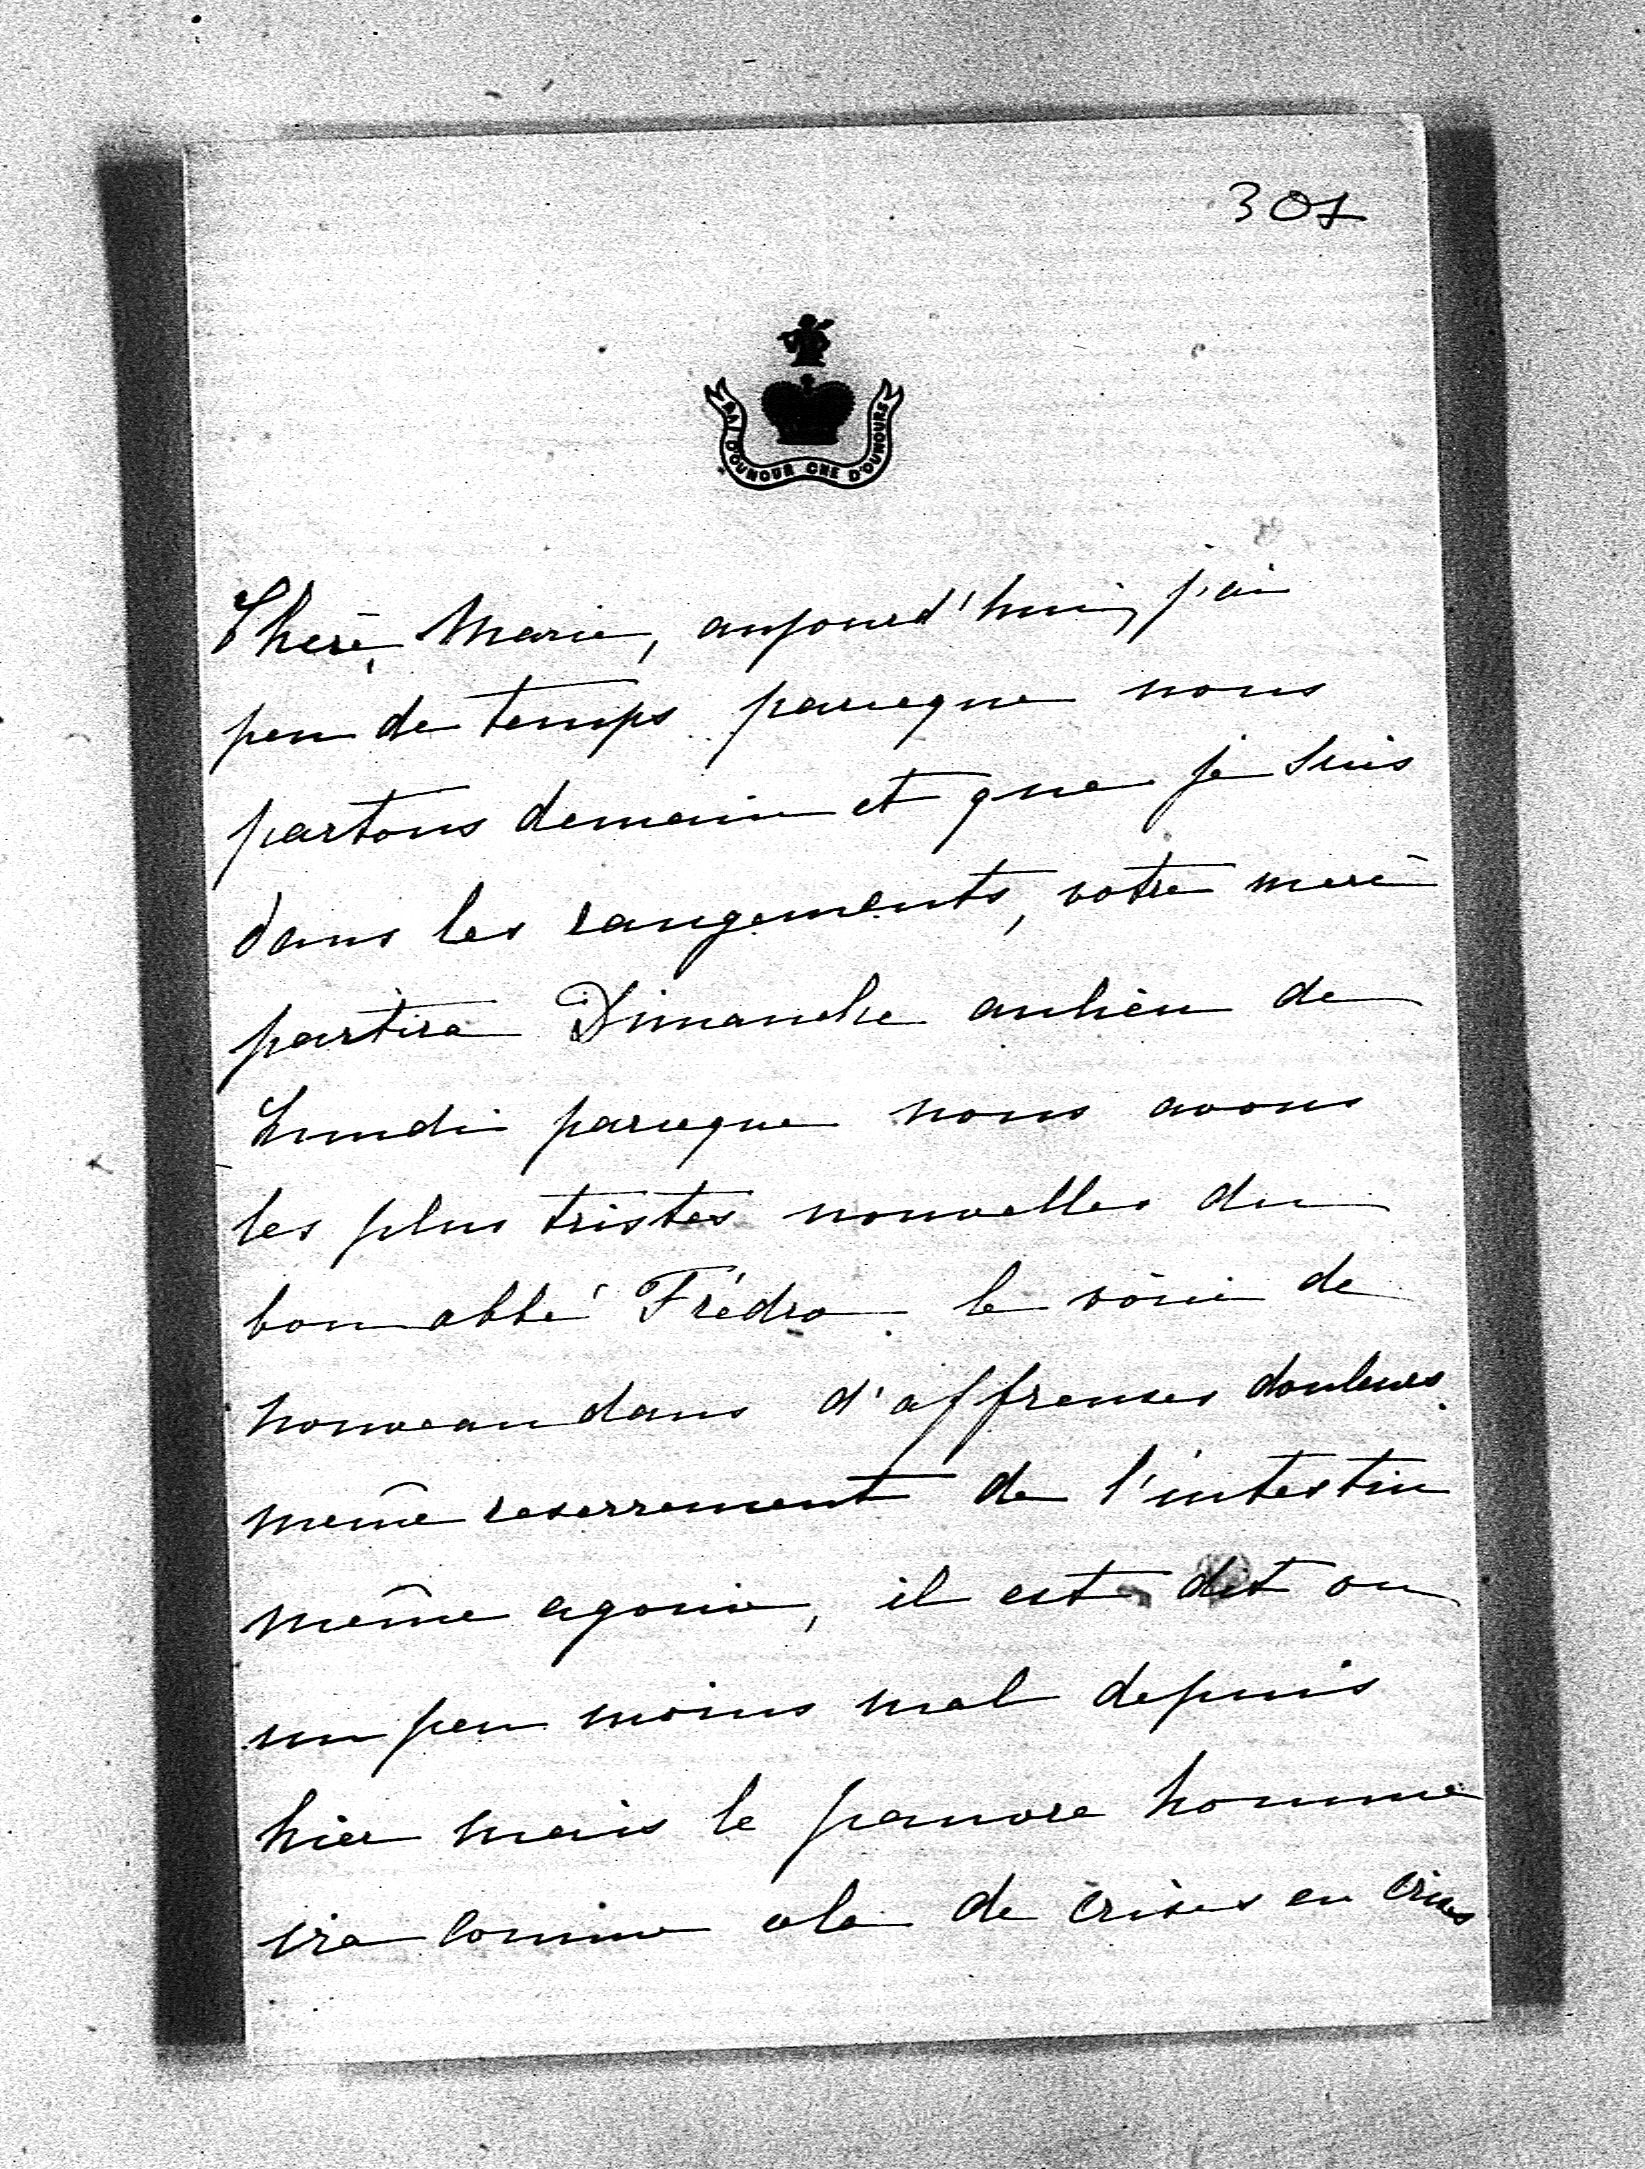 301
PAI D'OUNOUR CHE D'OUNOURS
Chère Marie, aujourd'hui, j'ai
peu de temps parceque nous
partons demain et que je suis
dans les rangements, votre mère
partira Dimanche aulieu de
Lundi parceque nous avons
les plus tristes nouvelles du
bon abbé Frédro le voici de
nouveau dans d'affreuses douleurs
même reserrement de l'intestin
même agonie, il est dit on
un peu moins mal depuis
hier mais le pauvre homme
ira comme cela de crises en crises